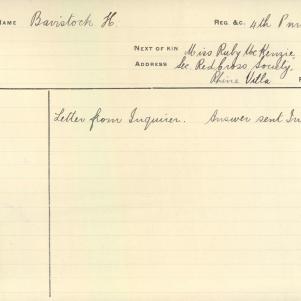 NAME Bavistock H. REG &C. 4th Pnr
NEXT OF KIN Miss Ruby McKenzie
ADDRESS Sec. Red Cross Society.
Rhine Villa
Letter from Inquirer. Answer sent In